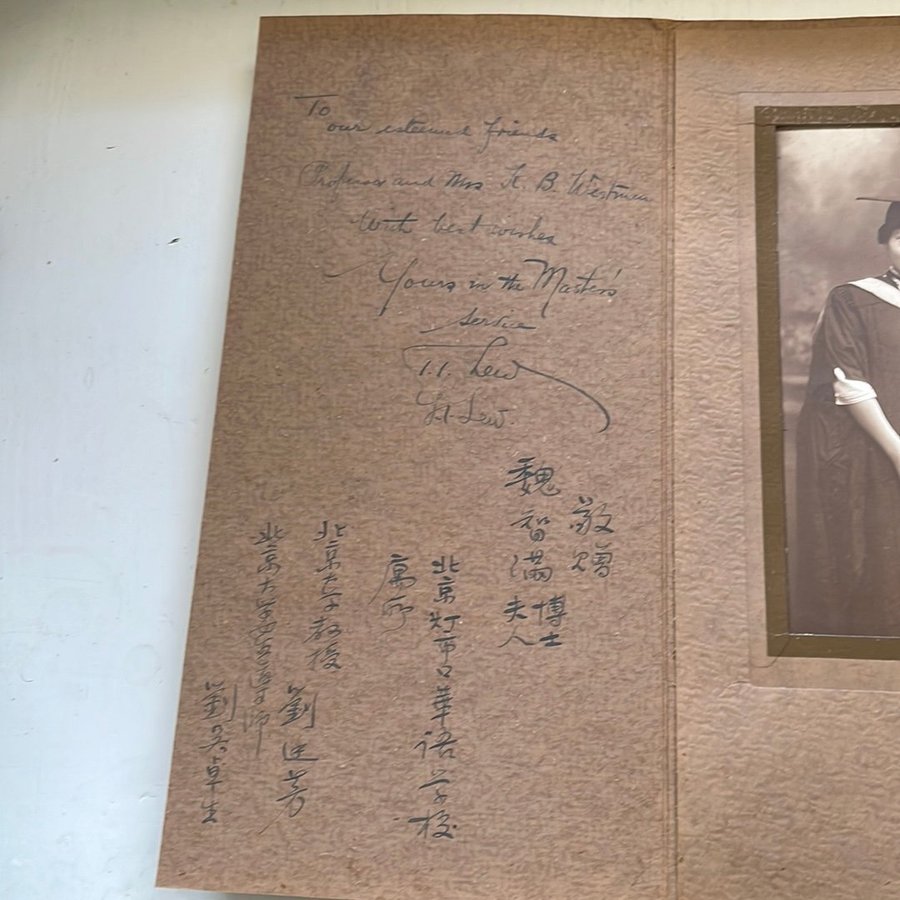 To
our esteemed friends
Professor and Mrs K. B. Westman
With best wishes
Yours in the Master's
service
T.T. Lew
Lew.
敬贈
魏智滿博士
夫人
北京灯市口華語学校
寓所
北京大学教授
劉廷芳
北京大
劉吳卓生